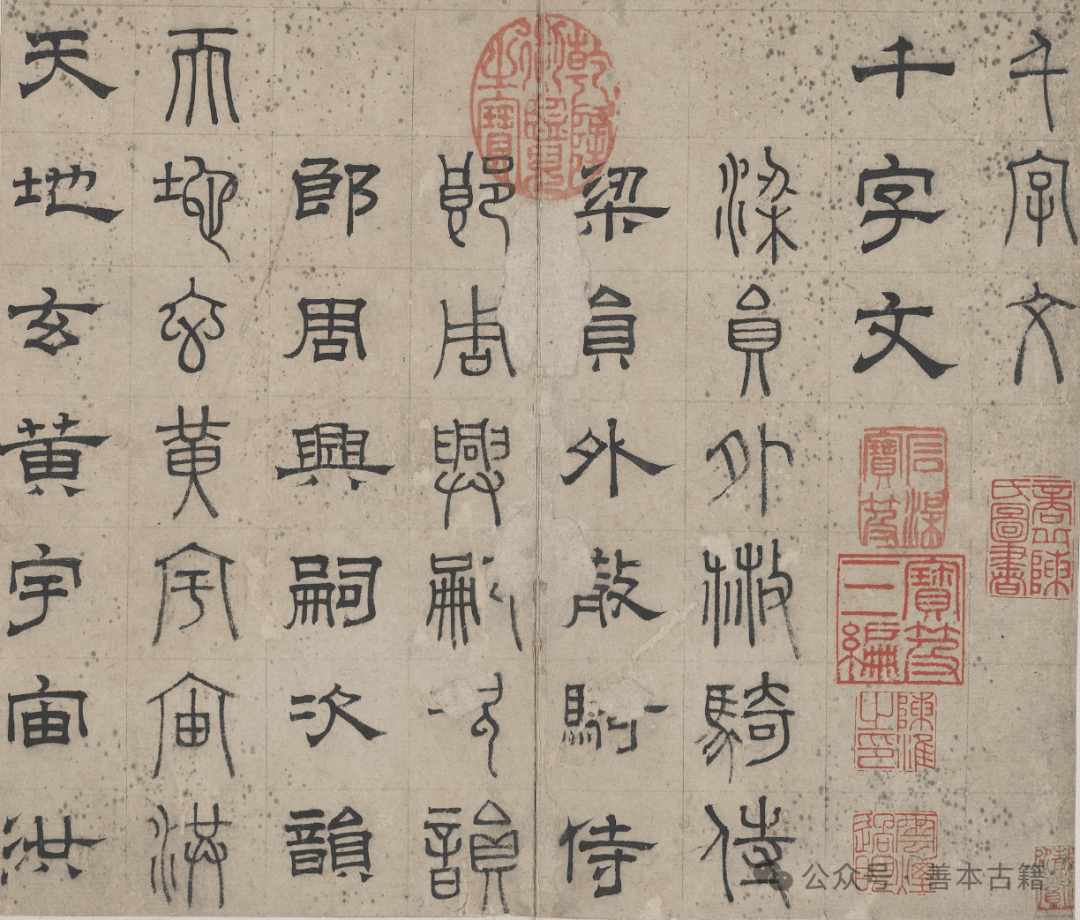 千字文
千字文
梁員外散騎侍
梁員外散騎侍
郎周興嗣次韻
郎周興嗣次韻
天地玄黃宇宙洪
天地玄黃宇宙洪
乾隆御覽之寶
寶笈三編
公众号·善本古籍